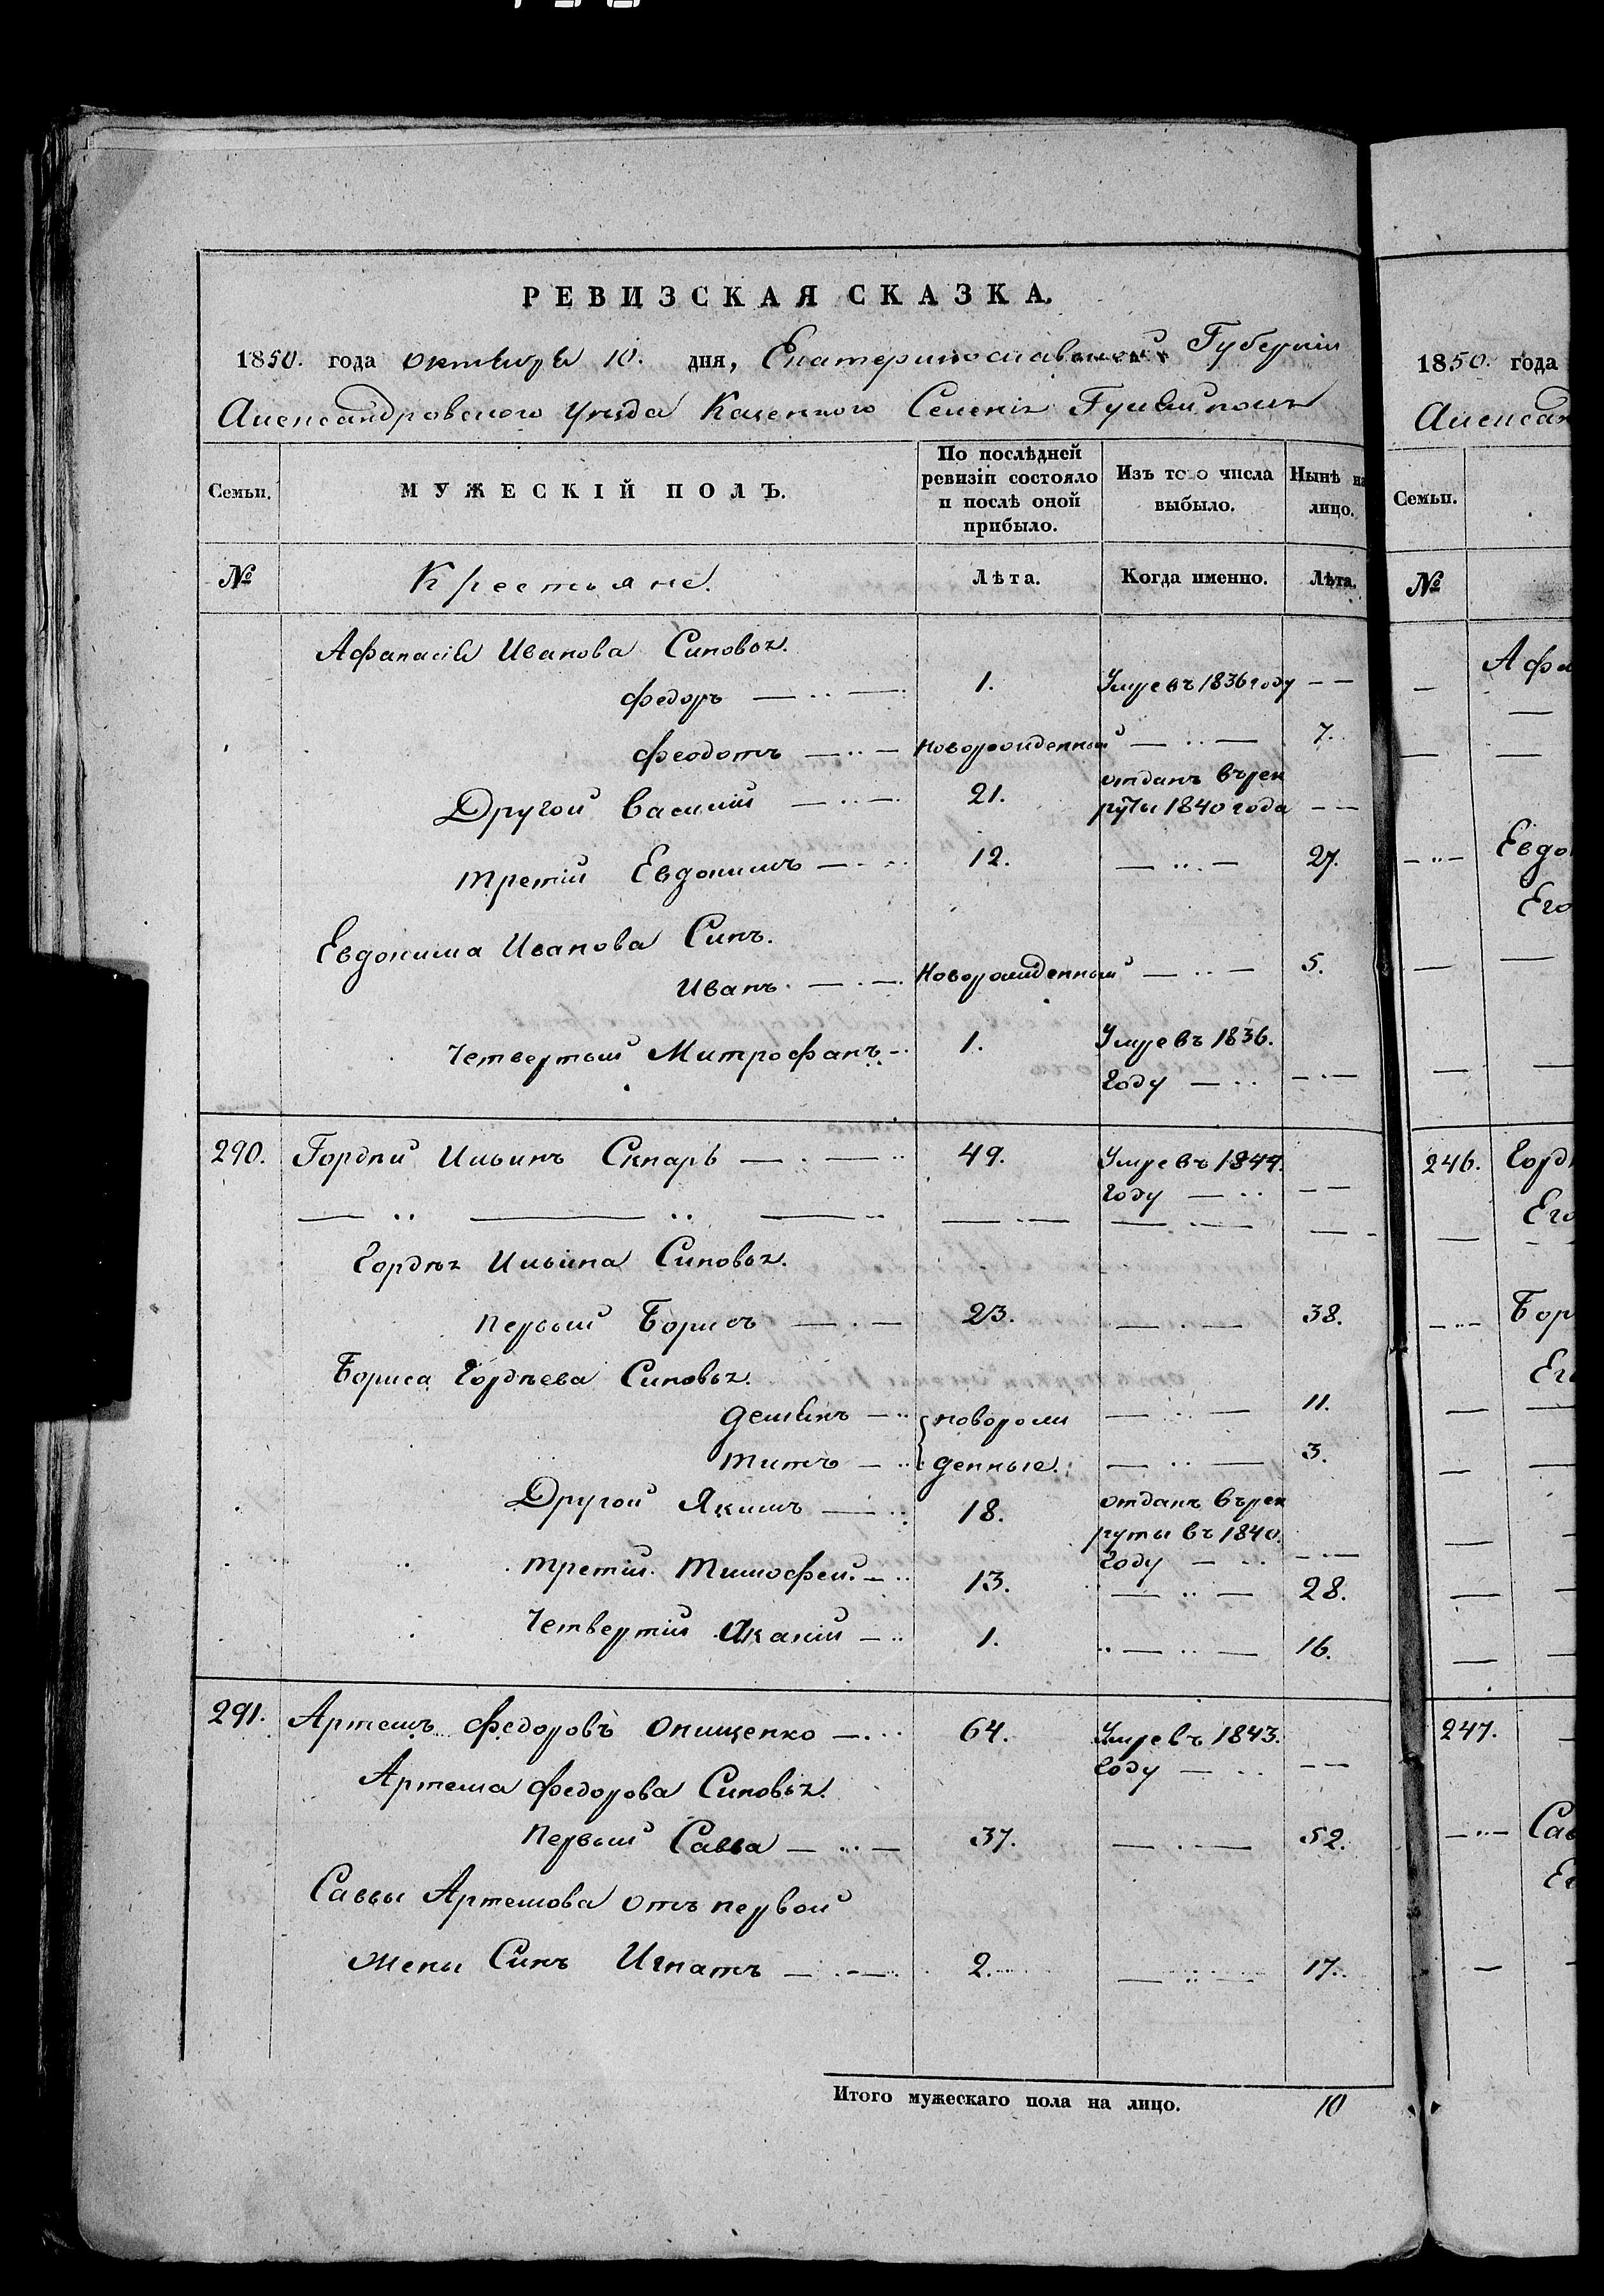 РЕВИЗСКАЯ СКАЗКА.
1850. года октября 10. дня, Екатеринославской Губерніи
Александровского Уезда Казенного Селенія Гуляйполя
Семьи. МУЖЕСКІЙ ПОЛЪ. По послѣдней ревизіи состояло и послѣ оной прибыло. Изъ того числа выбыло. Нынѣ на лицо.
№ Крестьяне. Лѣта. Когда именно. Лѣта.
Афанасія Иванова Синовья.
Федоръ — .. — 1. Умре въ 1836 году — —
Феодотъ — .. — Новорожденный — .. — 7.
Другой Василій — .. — 21. отданъ въ рек
руты 1840 года — —
третій Евдокимъ — .. 12. — .. — 27.
Евдокима Иванова Синъ.
Иванъ. — . — Новорожденный — .. — 5.
Четвертый Митрофанъ — .. 1. Умре въ 1836.
году — .. — . —
290. Гордѣй Ильинъ Скнарь — . — .. 49. Умре въ 1844.
году — .. — —
— .. — .. — .. — . — — . — — .
Гордѣя Ильина Синовья.
первый Борисъ — . — 23. — . — 38.
Бориса Гордѣева Синовья.
Демянъ — .. { новорож — .. — 11.
титъ — .. денные. — .. — 3.
Другой Якимъ — .. 18. отданъ въ рек
руты въ 1840.
году — .. — . —
третій. Тимофей. — .. 13. — .. — 28.
Четвертій Акакій — .. 1. .. — .. — 16.
291. Артемъ Федоровъ Онищенко — . .. 64. Умре въ 1843.
году — .. — —
Артема Федорова Синовья.
первый Савва — .. — 37. — . — 52.
Саввы Артемова отъ первой
жены Синъ Игнатъ — . — . 2. — .. — 17.
Итого мужескаго пола на лицо. 10
1850. года
Александ
Семьи.
№
— Афа
—
— —
— .. — Евдо
Его
— —
— —
246. Горд
— Его
— .. — Бор
Его
— —
— —
— —
— —
— —
247. —
— .. — Сав
Ег
— —